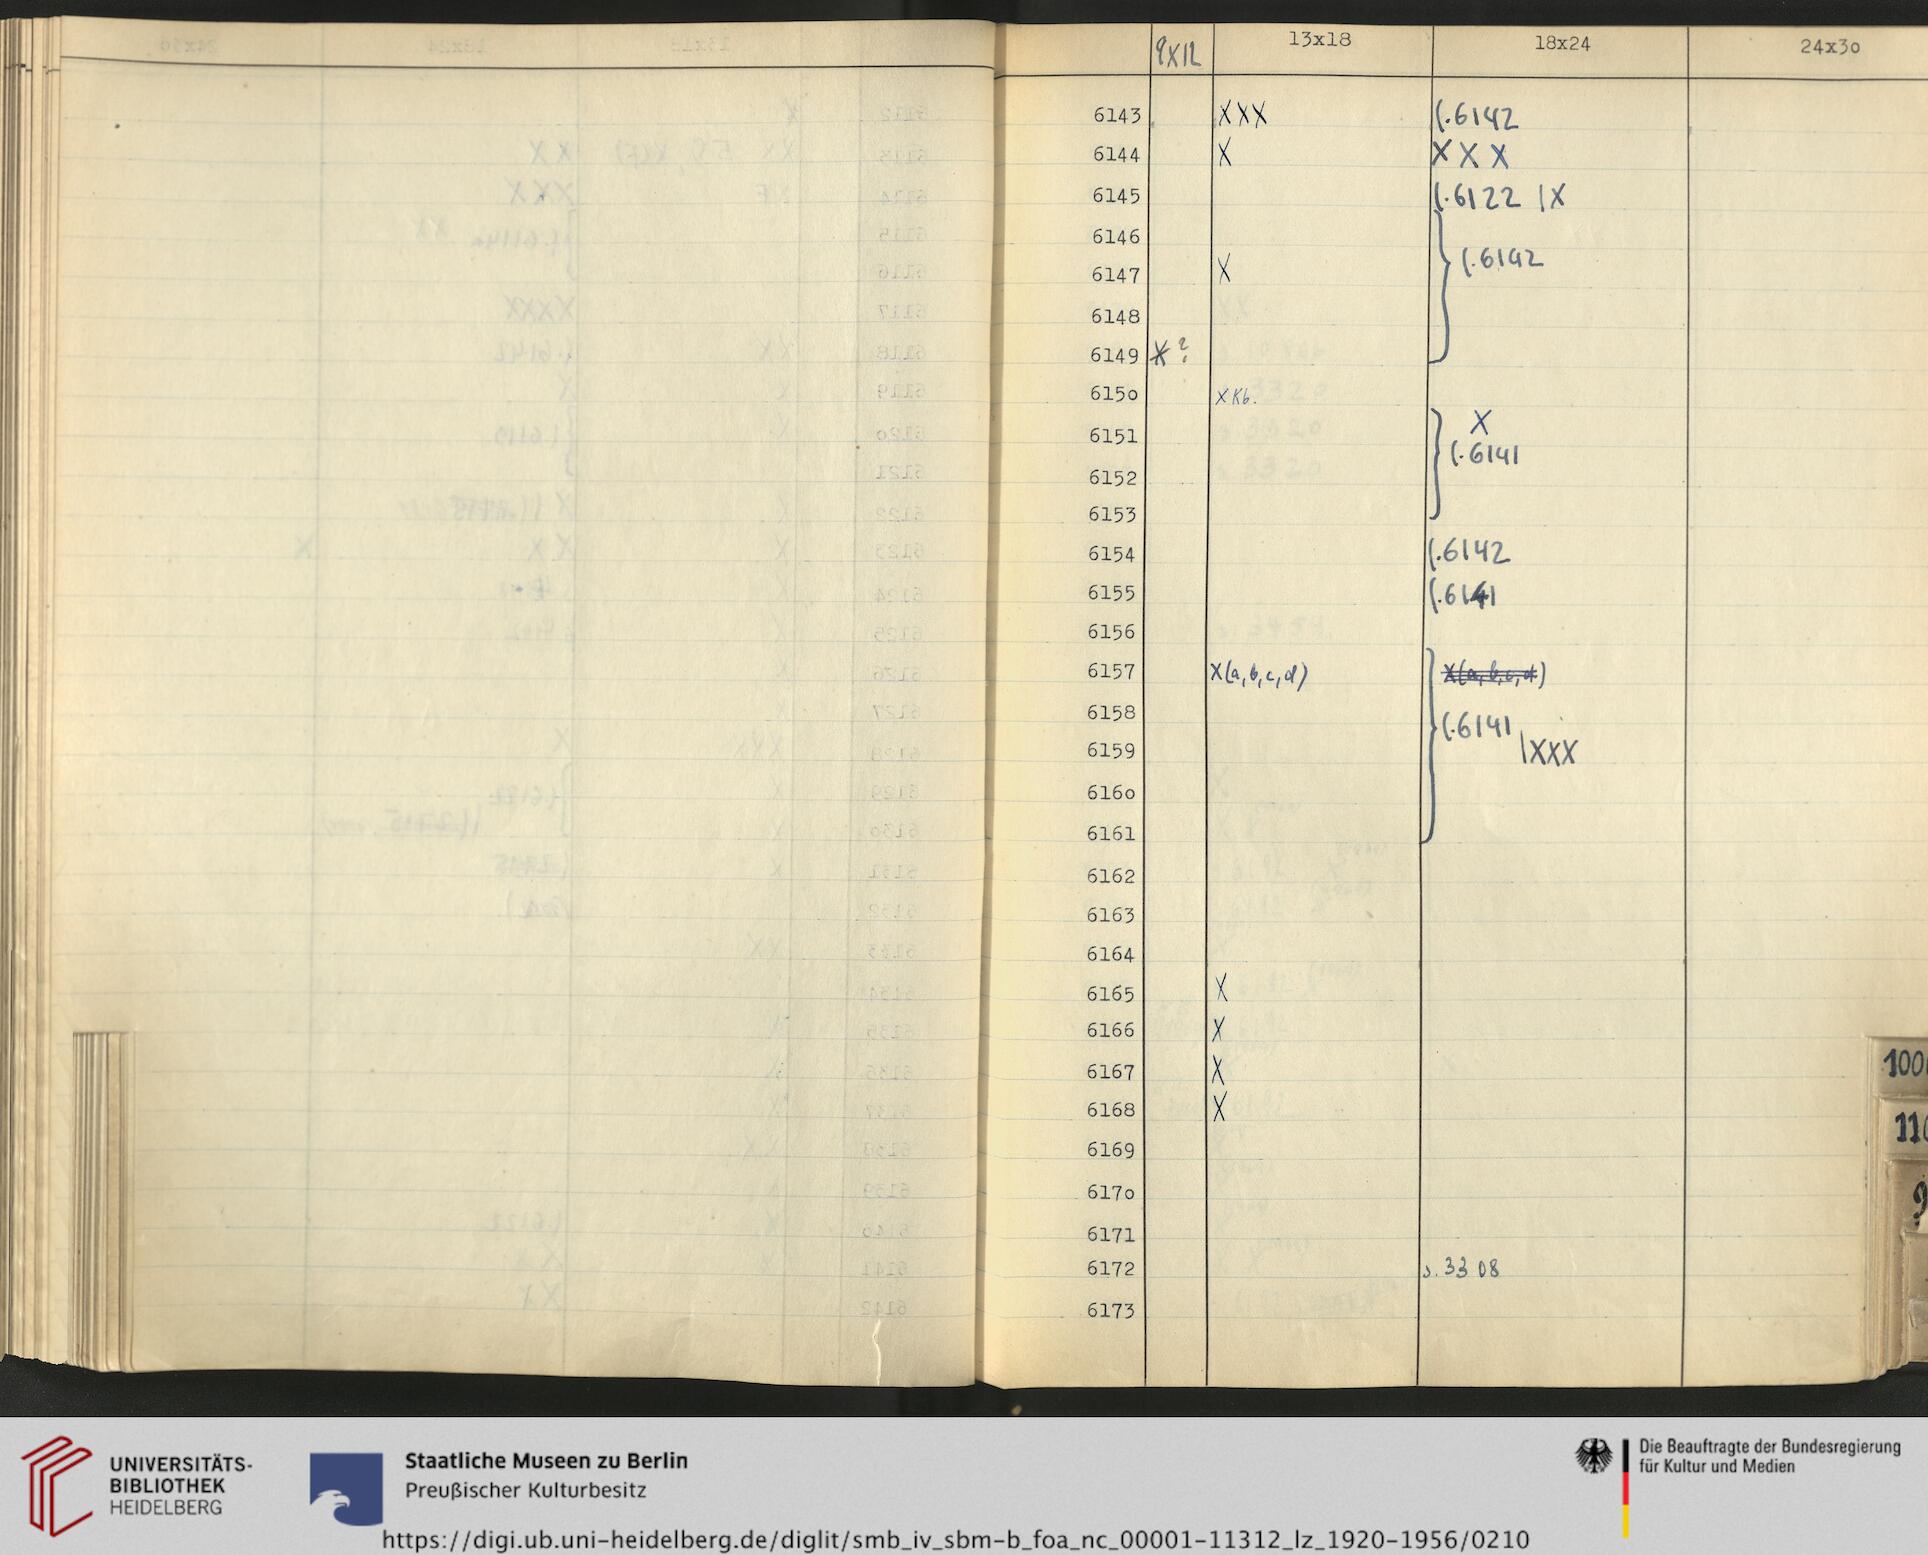 9x12 13x18 18x24 24x30
6143 XXX (.6142
6144 X X X X
6145 (.6122 |X
6146
(.6142
6147 X
6148
6149 X?
615o x Kb.
X
6151
(.6141
6152
6153
6154 (.6142
6155 (.6141
6156
6157 X(a,b,c,d) X(a,b,c,d)
6158
(.6141
6159 |XXX
616o
6161
6162
6163
6164
6165 X
6166 X
6167 X
6168 X
6169
617o
6171
6172 s. 3308
6173
UNIVERSITÄTS-
BIBLIOTHEK
HEIDELBERG
Staatliche Museen zu Berlin
Preußischer Kulturbesitz
Die Beauftragte der Bundesregierung
für Kultur und Medien
https://digi.ub.uni-heidelberg.de/diglit/smb_iv_sbm-b_foa_nc_00001-11312_lz_1920-1956/0210